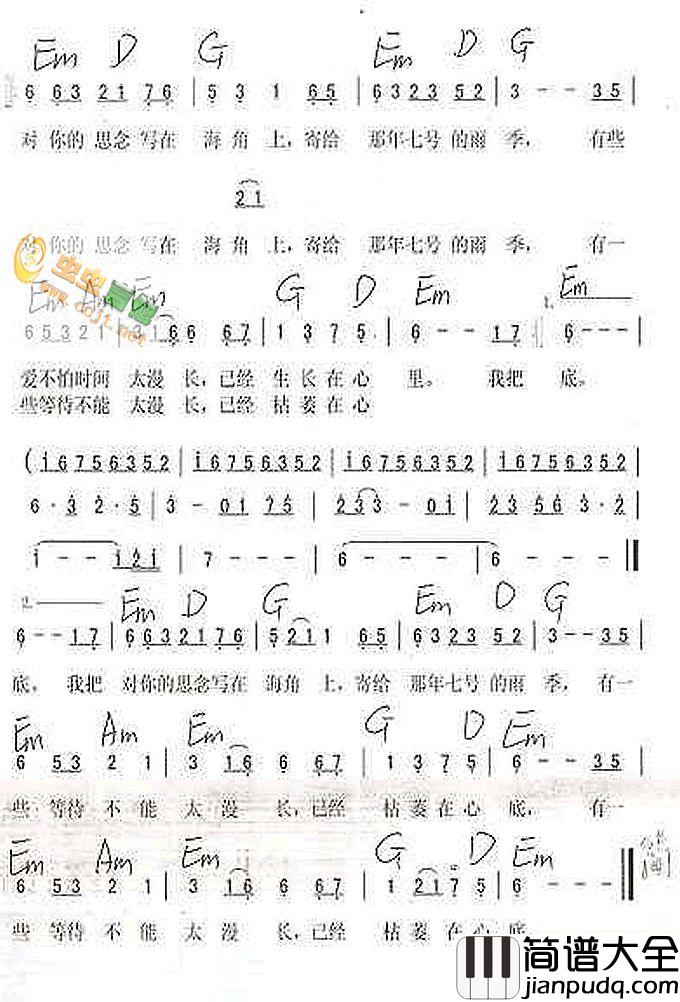 Em D G Em D G
6 63 21 76 | 5 3 1 65 | 6323 52 | 3 - - 35 |
对 你的 思念 写在 海 角 上，寄给 那年七号 的雨 季， 有些
21
对 你的 思念 写在 海 角 上，寄给 那年七号 的雨 季， 有一
Em Am Em G D Em 1. Em
6532 1 | 3166 67 | 1 3 7 5 | 6 - - 17 | 6 - -
爱不怕时间 太漫 长，已经 生 长 在 心 里。 我把 底。
些等待不能 太漫 长，已经 枯 萎 在 心
虫虫吉他
www.ccjt.net
(i6756352 | i6756352 | i6756352 | i6756352 |
6 · 3 2 · 5 | 3 - 01 75 | 233 - 0i | 23 56 3 · 2 |
i - - i2i | 7 - - - | 6 - - - | 6 - - -
2. Em D G Em D G
6 - - 17 | 663 21 76 | 5 21 1 65 | 6323 52 | 3 - - 35 |
底， 我把 对你的思念写在 海角 上，寄给 那年七号的雨 季， 有一
Em Am Em G D Em
6 53 2 1 | 3 16 6 67 | 1 3 7 5 | 6 - - 35 |
些 等待 不 能 太 漫 长，已经 枯 萎 在 心 底， 有一
Em Am Em G D Em
6 53 2 1 | 3 16 6 67 | 1 21 7 5 | 6 - - -
些 等待 不 能 太 漫 长，已经 枯 萎 在 心 底。
简谱大全
jianpudq.com